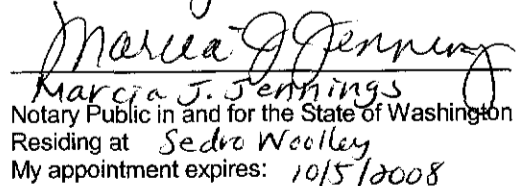 Marcia J Jennings
Marcia J. Jennings
Notary Public in and for the State of Washington
Residing at Sedro Woolley
My appointment expires: 10/5/2008